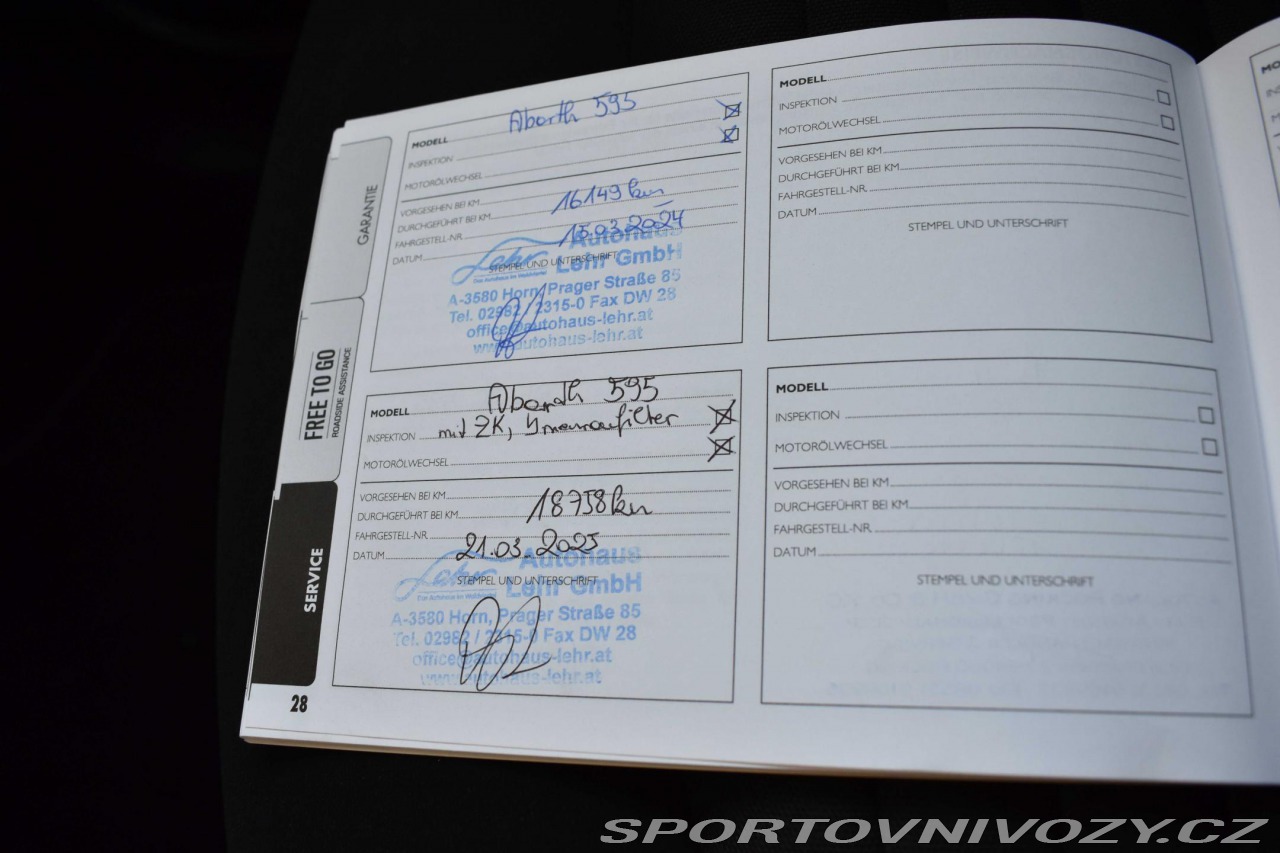 GARANTIE
FREE TO GO
ROADSIDE ASSISTANCE
SERVICE
28
MODELL Abarth 595
INSPEKTION
MOTORÖLWECHSEL
VORGESEHEN BEI KM
DURCHGEFÜHRT BEI KM 16149 km
FAHRGESTELL-NR.
DATUM 15.03.2024
STEMPEL UND UNTERSCHRIFT
Lehr Autohaus
Lehr GmbH
Das Autohaus im Waldviertel
A-3580 Horn, Prager Straße 85
Tel. 02982 / 2315-0 Fax DW 28
office@autohaus-lehr.at
www.autohaus-lehr.at
MODELL Abarth 595
INSPEKTION mit ZK, Innenraumfilter
MOTORÖLWECHSEL
VORGESEHEN BEI KM
DURCHGEFÜHRT BEI KM 18758 km
FAHRGESTELL-NR.
DATUM 21.03.2025
STEMPEL UND UNTERSCHRIFT
Lehr Autohaus
Lehr GmbH
Das Autohaus im Waldviertel
A-3580 Horn, Prager Straße 85
Tel. 02982 / 2315-0 Fax DW 28
office@autohaus-lehr.at
www.autohaus-lehr.at
MODELL
INSPEKTION
MOTORÖLWECHSEL
VORGESEHEN BEI KM
DURCHGEFÜHRT BEI KM
FAHRGESTELL-NR.
DATUM
STEMPEL UND UNTERSCHRIFT
MODELL
INSPEKTION
MOTORÖLWECHSEL
VORGESEHEN BEI KM
DURCHGEFÜHRT BEI KM
FAHRGESTELL-NR.
DATUM
STEMPEL UND UNTERSCHRIFT
SPORTOVNIVOZY.CZ